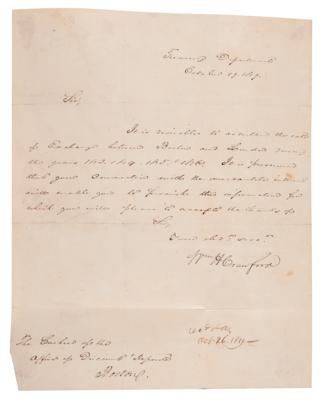 Treasury Department
October 17. 1819.
Sir,
It is requisite to ascertain the rate
of Exchange between Boston and London during
the years 1813. 1814. 1815. & 1816. It is presumed
that your connection with the mercantile interest
will enable you to furnish this information for
which you will please to accept the thanks of
Sir,
Your obt. servt.
Wm H Crawford
The Cashier of the
Office of Discount & Deposit
Boston.
Oct. 26. 1819